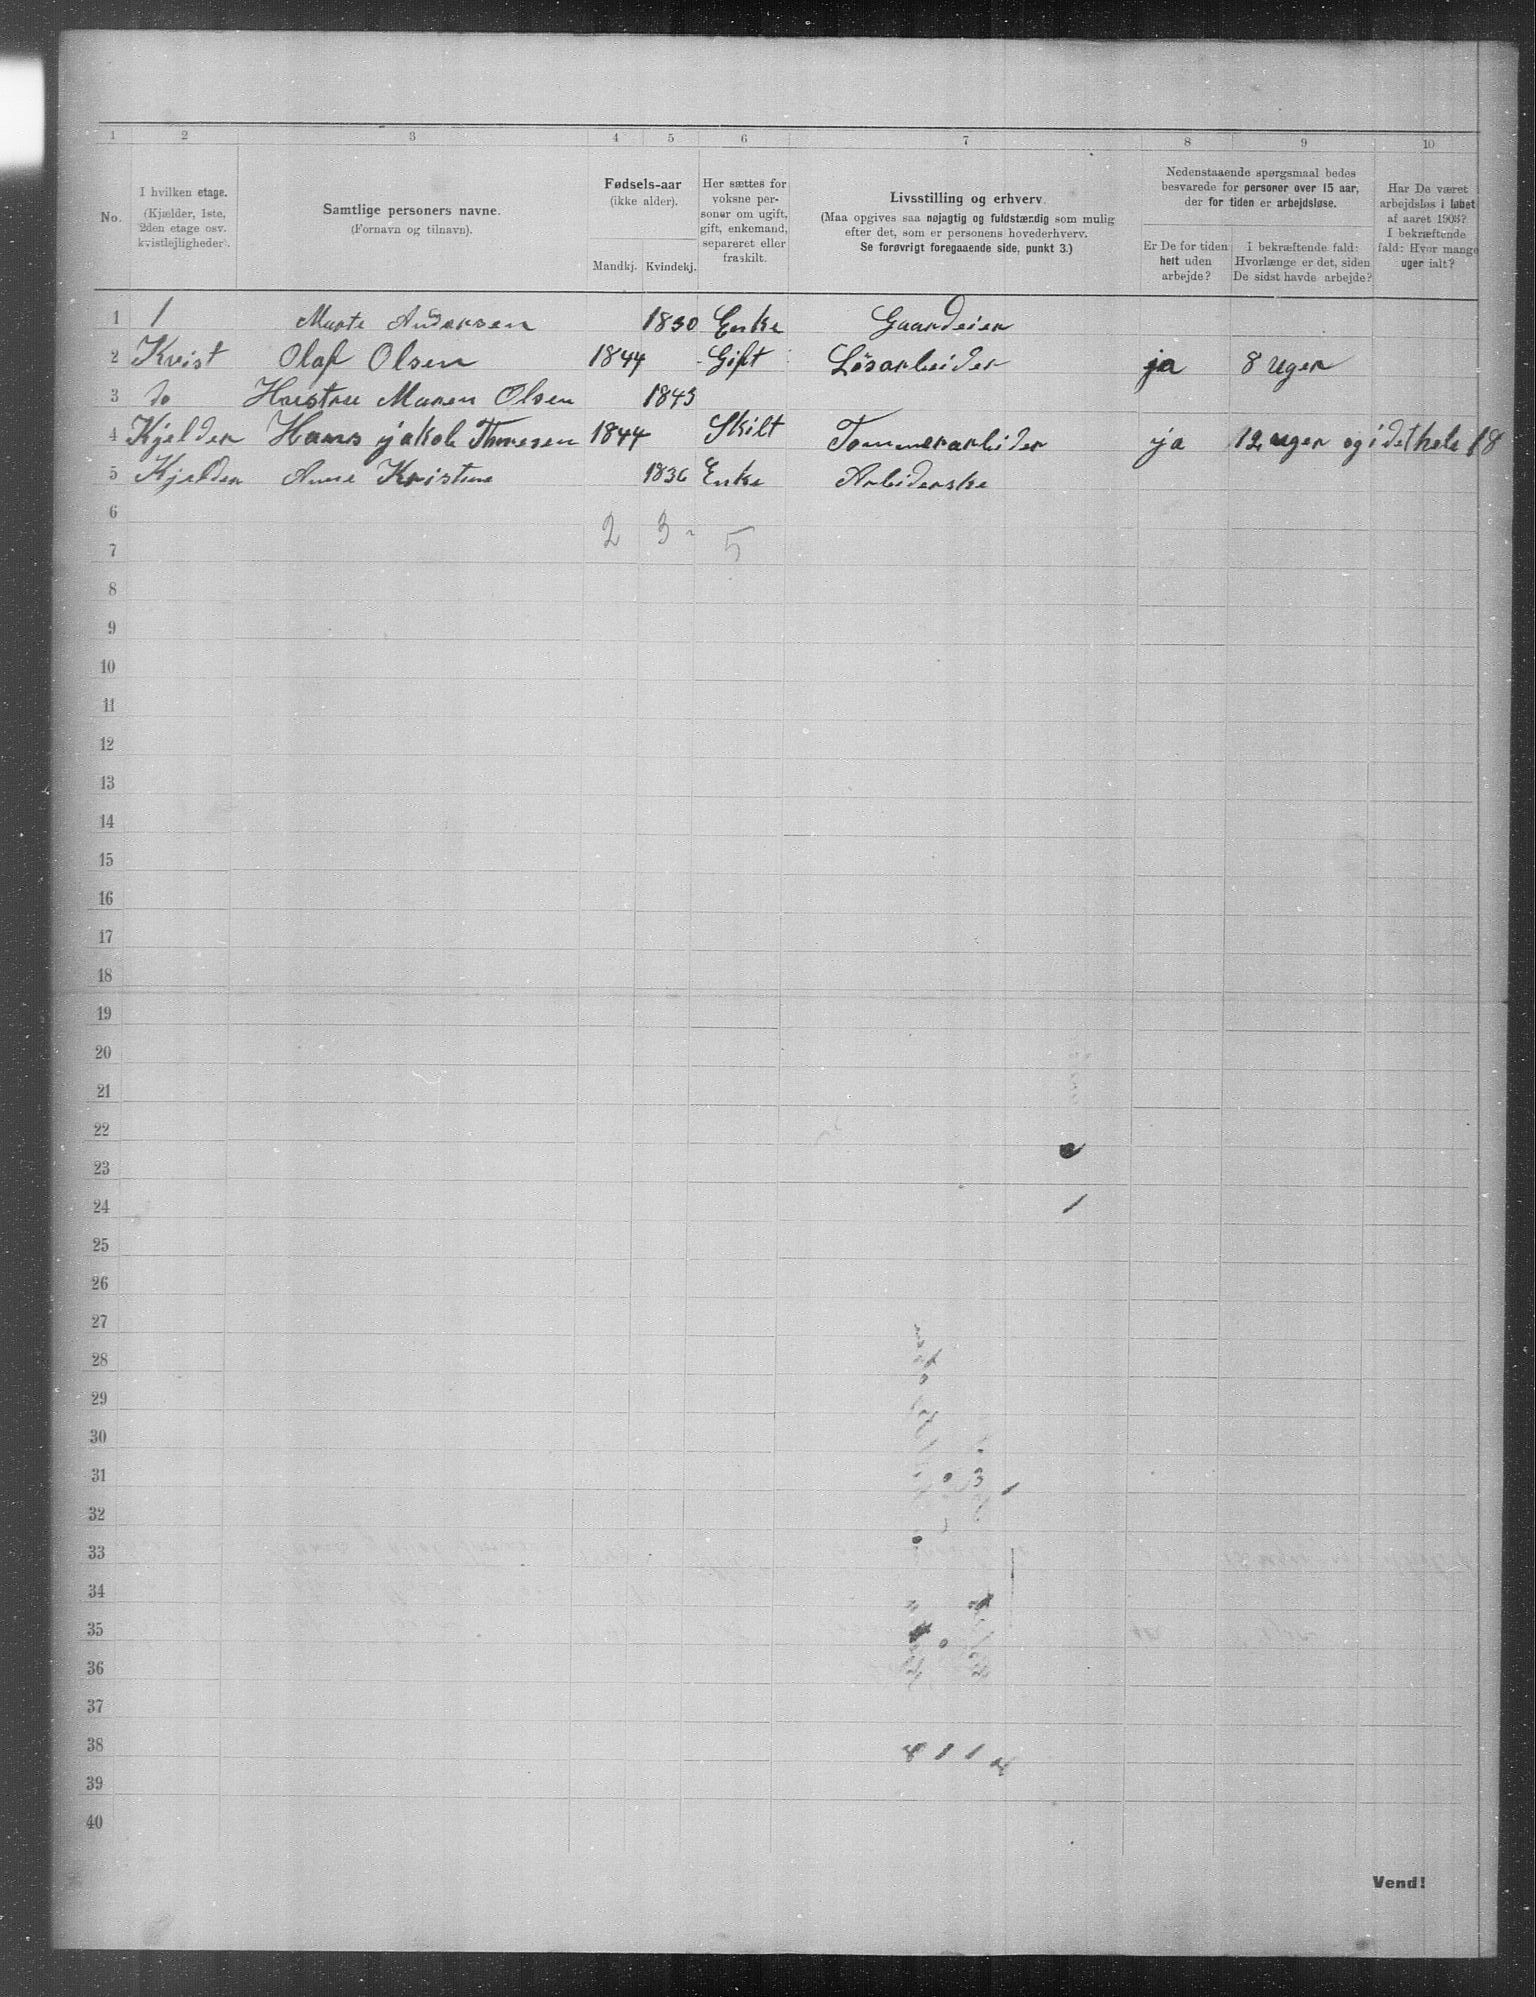 1 2 3 4 5 6 7 8 9 10
No.
I hvilken etage.
(Kjælder, 1ste,
2den etage osv.
kvistlejligheder).
Samtlige personers navne.
(Fornavn og tilnavn).
Fødsels-aar
(ikke alder).
Mandkj. Kvindekj.
Her sættes for
voksne per-
soner om ugift,
gift, enkemand,
separeret eller
fraskilt.
Livsstilling og erhverv.
(Maa opgives saa nøjagtig og fuldstændig som mulig
efter det, som er personens hovederhverv.
Se forøvrigt foregaaende side, punkt 3.)
Nedenstaaende spørgsmaal bedes
besvarede for personer over 15 aar,
der for tiden er arbejdsløse.
Er De for tiden
helt uden
arbejde?
I bekræftende fald:
Hvorlænge er det, siden
De sidst havde arbejde?
Har De været
arbejdsløs i løbet
af aaret 1903?
I bekræftende
fald: Hvor mange
uger ialt?
1 1 Marte Andersen 1830 Enke Gaardeier
2 Kvist Olaf Olsen 1844 Gift Løsarbeider ja 8 uger
3 do Hustru Maren Olsen 1843
4 Kjelder Hans jakob Thoresen 1844 Skilt Tommerarbeider ja 12 uger og i det hele 18
5 Kjelder Anne Kristine 1836 Enke Arbiderske
6
2 3 - 5
7
8
9
10
11
12
13
14
15
16
17
18
19
20
21
22
23
24
25
26
27
28
29
30
31
32
33
34
35
36
37
38
39
40
Vend!